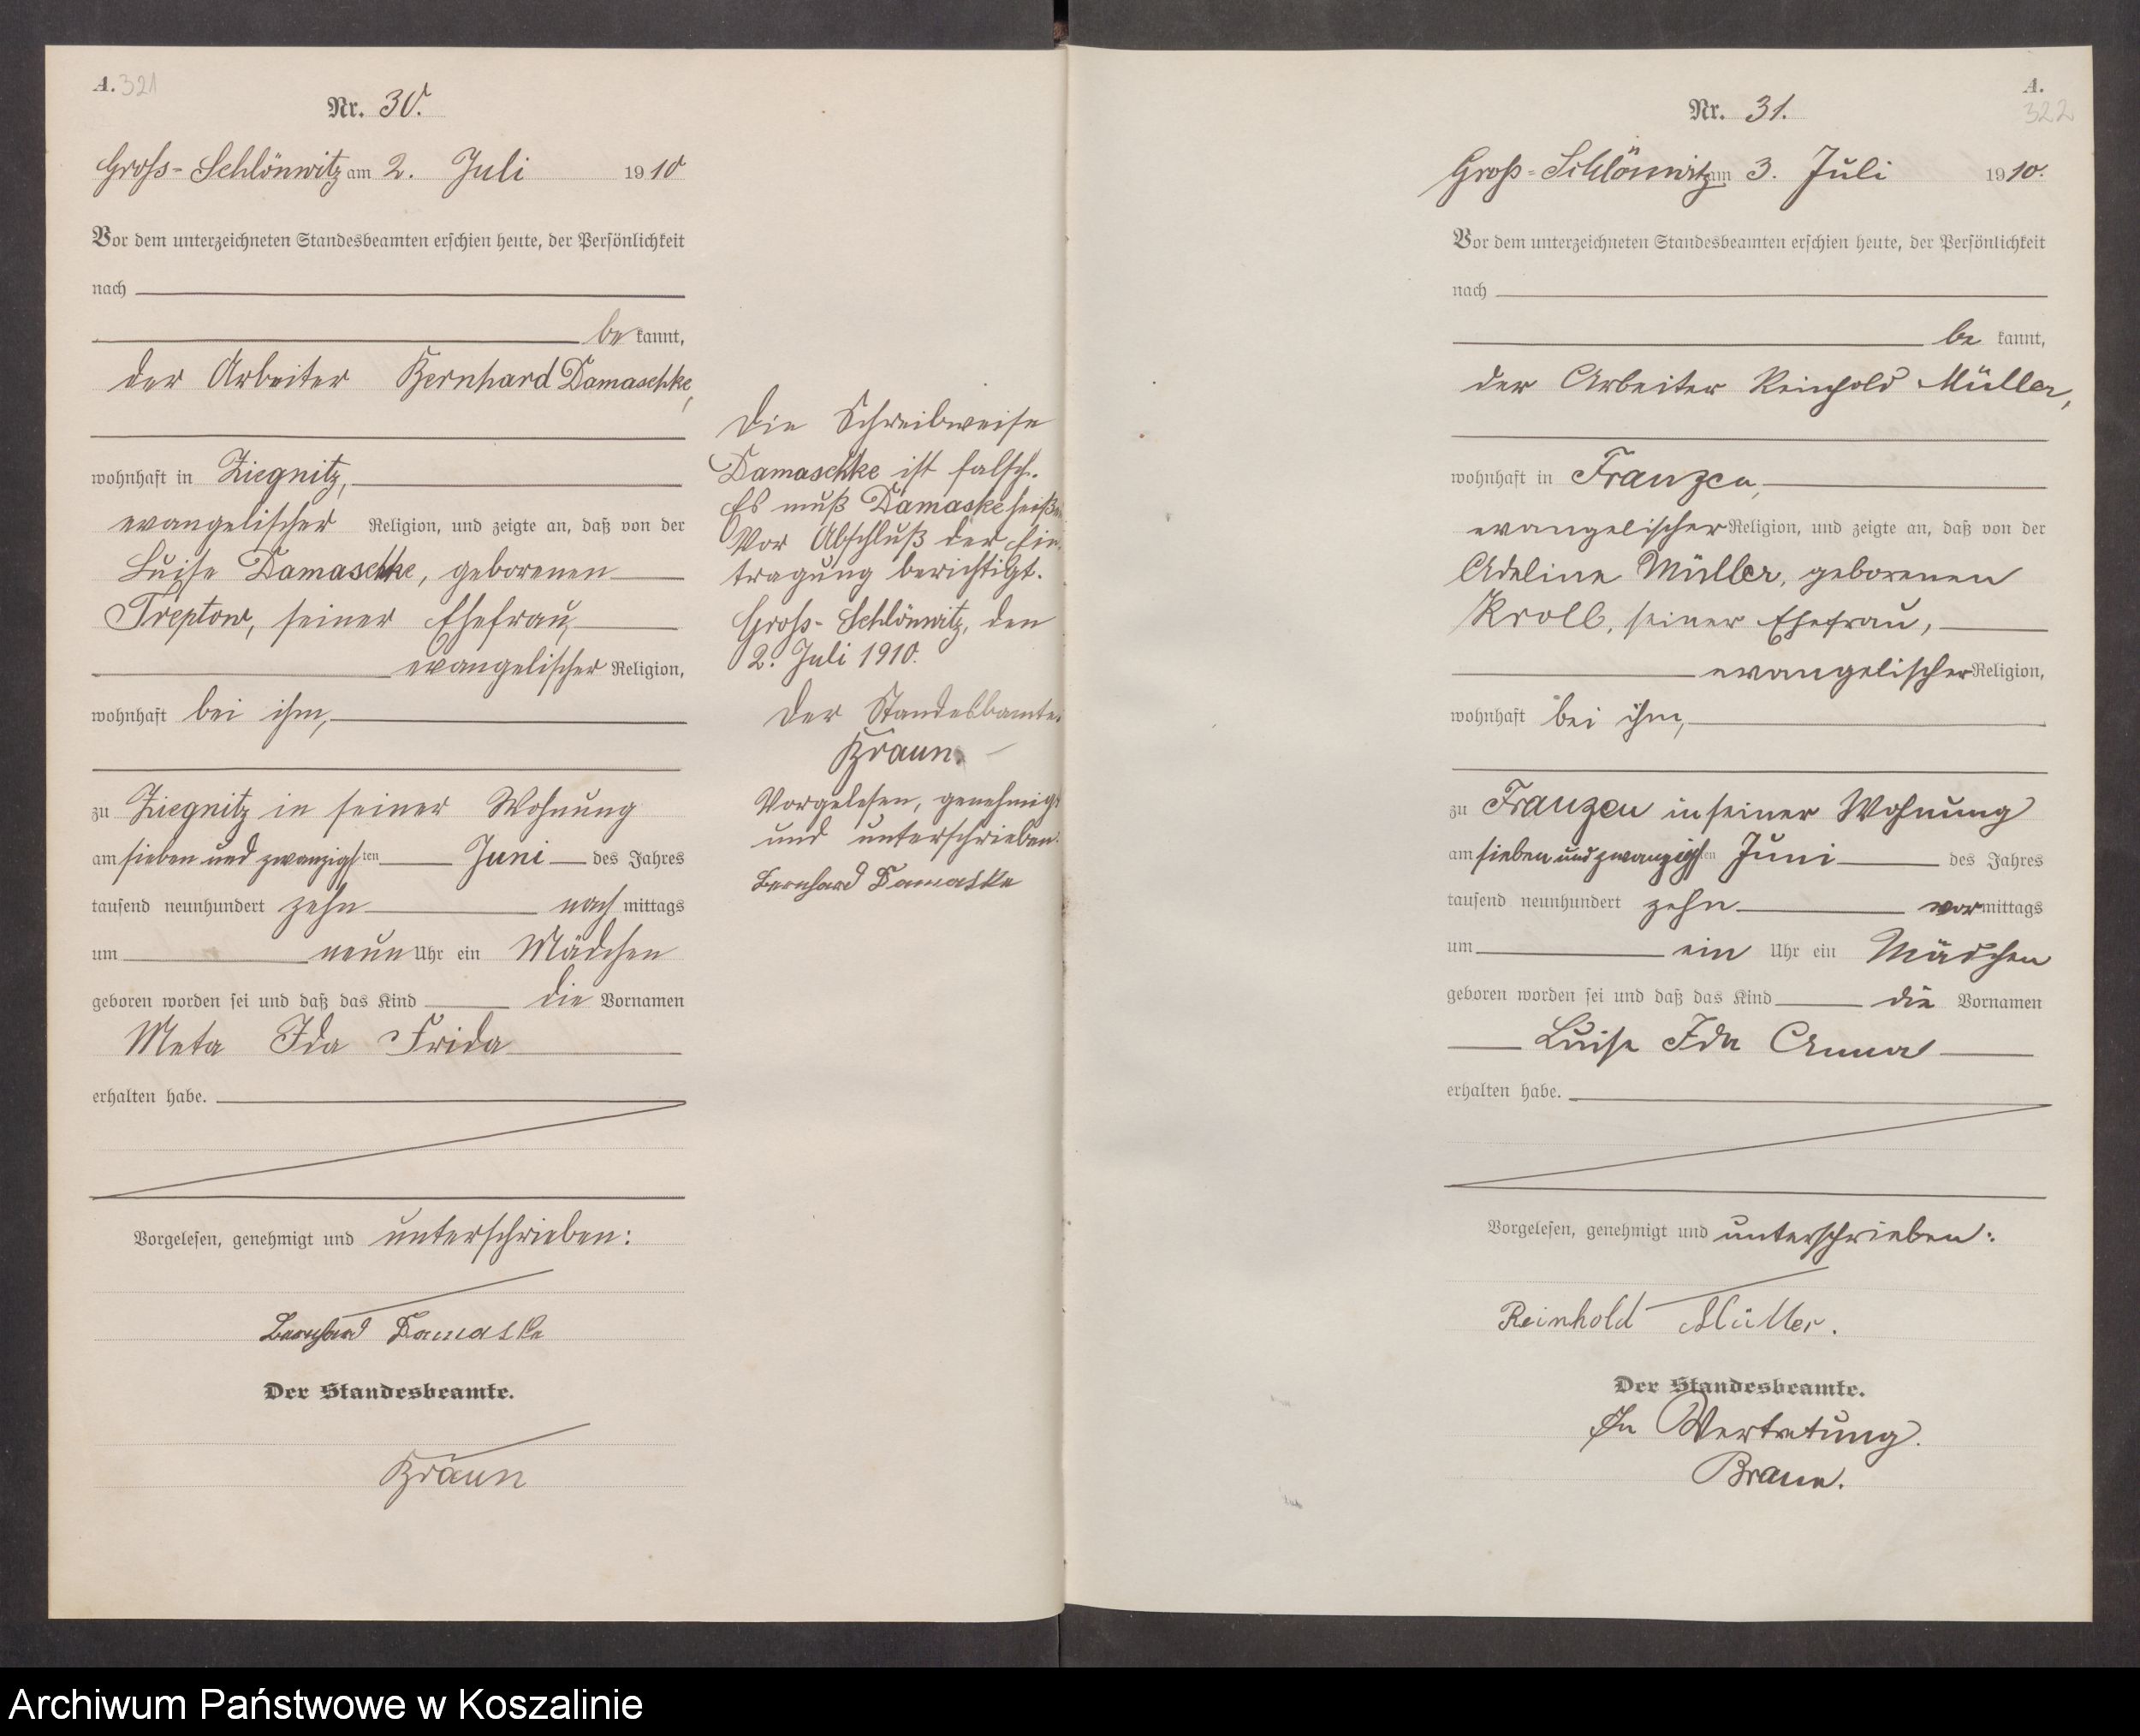 A. 321
Nr. 30.
Gross-Schlönwitz am 2. Juli 1910
Vor dem unterzeichneten Standesbeamten erschien heute, der Persönlichkeit
nach
be kannt,
der Arbeiter Bernhard Damaschke,
wohnhaft in Ziegnitz,
evangelischer Religion, und zeigte an, daß von der
Luise Damaschke, geborenen
Treptow, seiner Ehefrau,
evangelischer Religion,
wohnhaft bei ihm,
zu Ziegnitz in seiner Wohnung
am sieben und zwanzigsten Juni des Jahres
tausend neunhundert zehn nach mittags
um neun Uhr ein Mädchen
geboren worden sei und daß das Kind die Vornamen
Meta Ida Frida
erhalten habe.
Vorgelesen, genehmigt und unterschrieben:
Bernhard Damaske
Der Standesbeamte.
Braun
Die Schreibweise
Damaschke ist falsch.
Es muß Damaske heißen
Vor Abschluß der Ein-
tragung berichtigt.
Gross-Schlönwitz, den
2. Juli 1910.
Der Standesbeamte
Braun.
Vorgelesen, genehmigt
und unterschrieben.
Bernhard Damaske
A.
322
Nr. 31.
Groß-Schlönwitz am 3. Juli 1910.
Vor dem unterzeichneten Standesbeamten erschien heute, der Persönlichkeit
nach
be kannt,
der Arbeiter Reinhold Müller,
wohnhaft in Franzen,
evangelischer Religion, und zeigte an, daß von der
Adeline Müller, geborenen
Kroll, seiner Ehefrau,
evangelischer Religion,
wohnhaft bei ihm,
zu Franzen in seiner Wohnung
am sieben und zwanzigsten Juni des Jahres
tausend neunhundert zehn vormittags
um ein Uhr ein Mädchen
geboren worden sei und daß das Kind die Vornamen
Luise Ida Anna
erhalten habe.
Vorgelesen, genehmigt und unterschrieben:
Reinhold Müller.
Der Standesbeamte.
In Vertretung.
Braun.
Archiwum Państwowe w Koszalinie